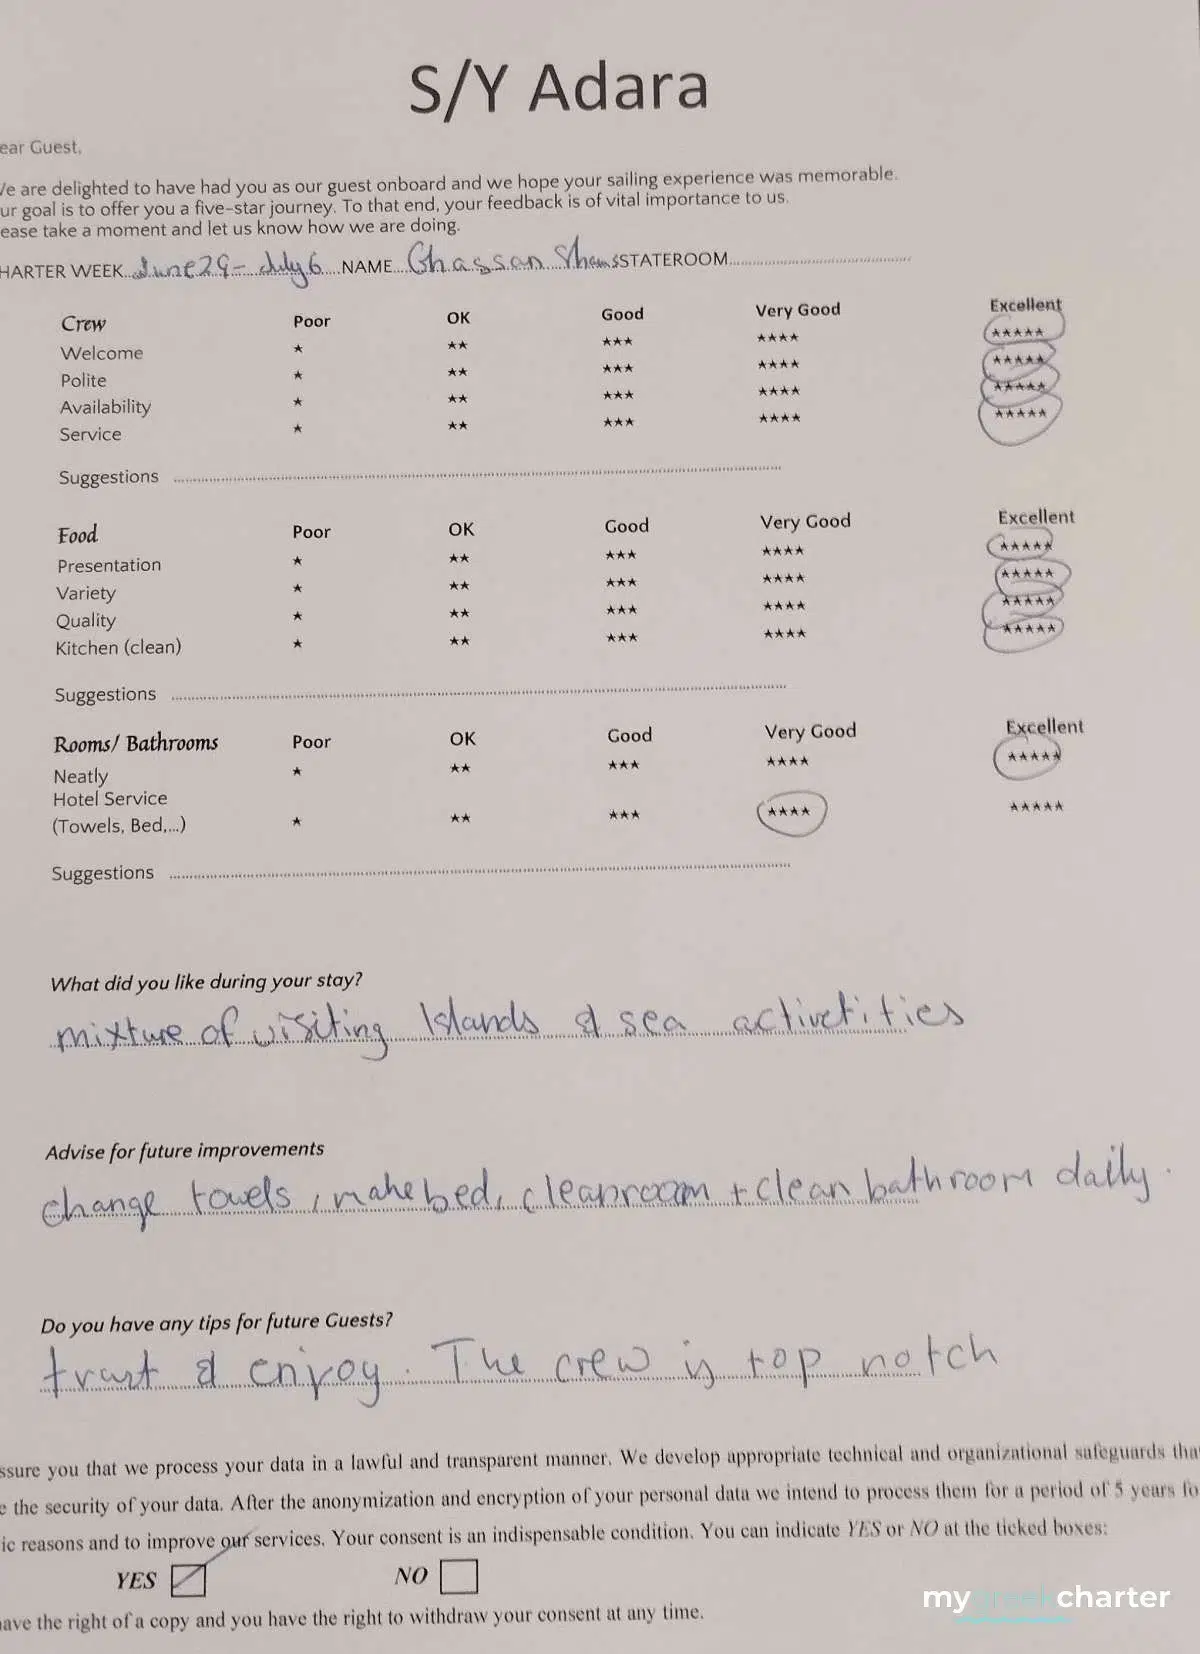 S/Y Adara
ear Guest,
Ve are delighted to have had you as our guest onboard and we hope your sailing experience was memorable.
ur goal is to offer you a five-star journey. To that end, your feedback is of vital importance to us.
ease take a moment and let us know how we are doing.
HARTER WEEK June 29 - July 6 NAME Ghassan Shams STATEROOM
Crew Poor OK Good Very Good Excellent
Welcome ★ ★★ ★★★ ★★★★ ★★★★★
Polite ★ ★★ ★★★ ★★★★ ★★★★★
Availability ★ ★★ ★★★ ★★★★ ★★★★★
Service ★ ★★ ★★★ ★★★★ ★★★★★
Suggestions
Food Poor OK Good Very Good Excellent
Presentation ★ ★★ ★★★ ★★★★ ★★★★★
Variety ★ ★★ ★★★ ★★★★ ★★★★★
Quality ★ ★★ ★★★ ★★★★ ★★★★★
Kitchen (clean) ★ ★★ ★★★ ★★★★ ★★★★★
Suggestions
Rooms/ Bathrooms Poor OK Good Very Good Excellent
Neatly ★ ★★ ★★★ ★★★★ ★★★★★
Hotel Service
(Towels, Bed,...) ★ ★★ ★★★ ★★★★ ★★★★★
Suggestions
What did you like during your stay?
mixture of visiting Islands & sea activetities
Advise for future improvements
change towels, make bed, clean room + clean bathroom daily.
Do you have any tips for future Guests?
trust & enjoy. The crew is top notch
ssure you that we process your data in a lawful and transparent manner. We develop appropriate technical and organizational safeguards tha
e the security of your data. After the anonymization and encryption of your personal data we intend to process them for a period of 5 years fo
ic reasons and to improve our services. Your consent is an indispensable condition. You can indicate YES or NO at the ticked boxes:
YES NO
ave the right of a copy and you have the right to withdraw your consent at any time.
mygreekcharter